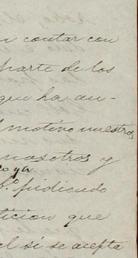 n contar con
parte de los
que ha an-
l motivo nuestros
nosotros y
S.ª pidiendo
ticion que
el si se acepta